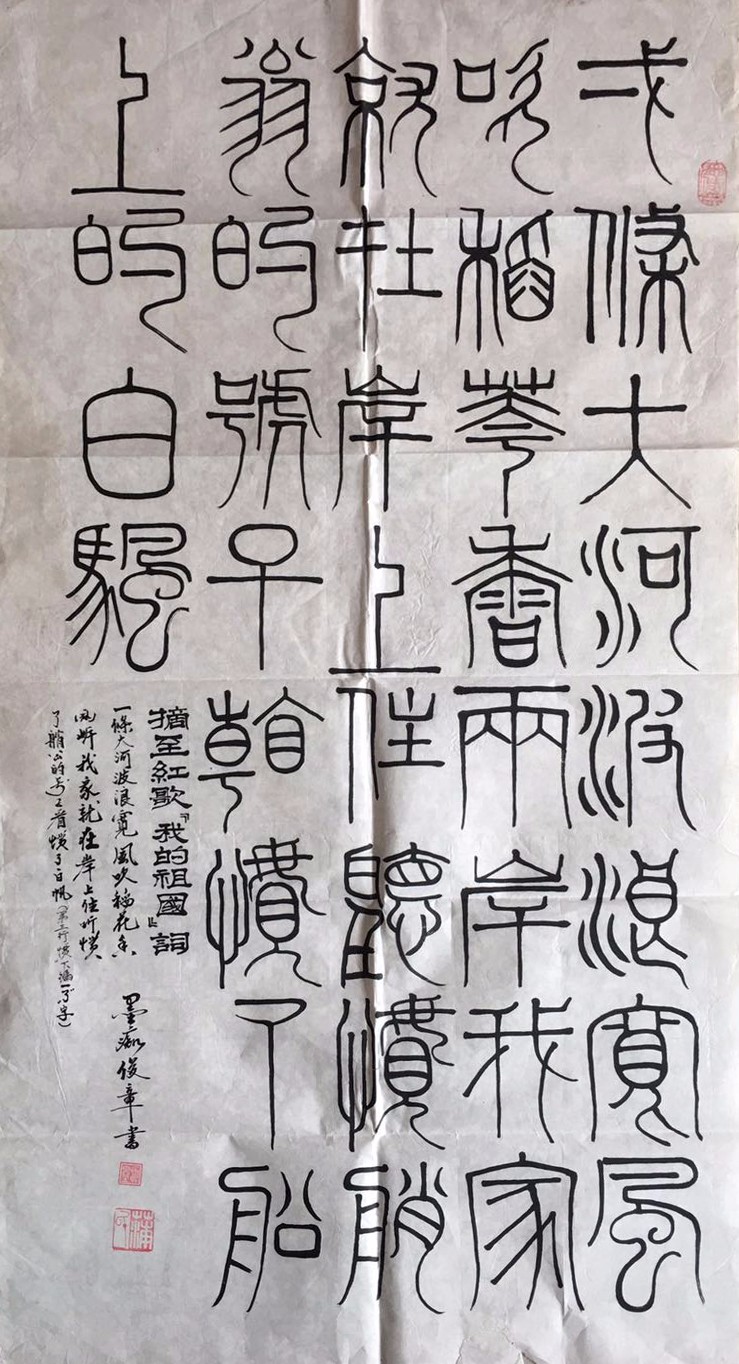 弌條大河波浪寬風
吹稻華香兩岸我家
就在岸上住聽慣艄
翁的號子看慣了船
上的白颿
摘至紅歌『我的祖國』詞
一條大河波浪寬風吹稻花香
两岸我家就在岸上住听惯
了艄公的号子看惯了白帆（第三行惯下漏一了字）
墨痴俊章書